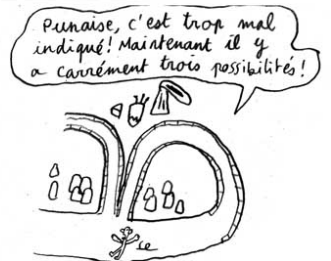 Punaise, c'est trop mal
indiqué! Maintenant il y
a carrément trois possibilités!